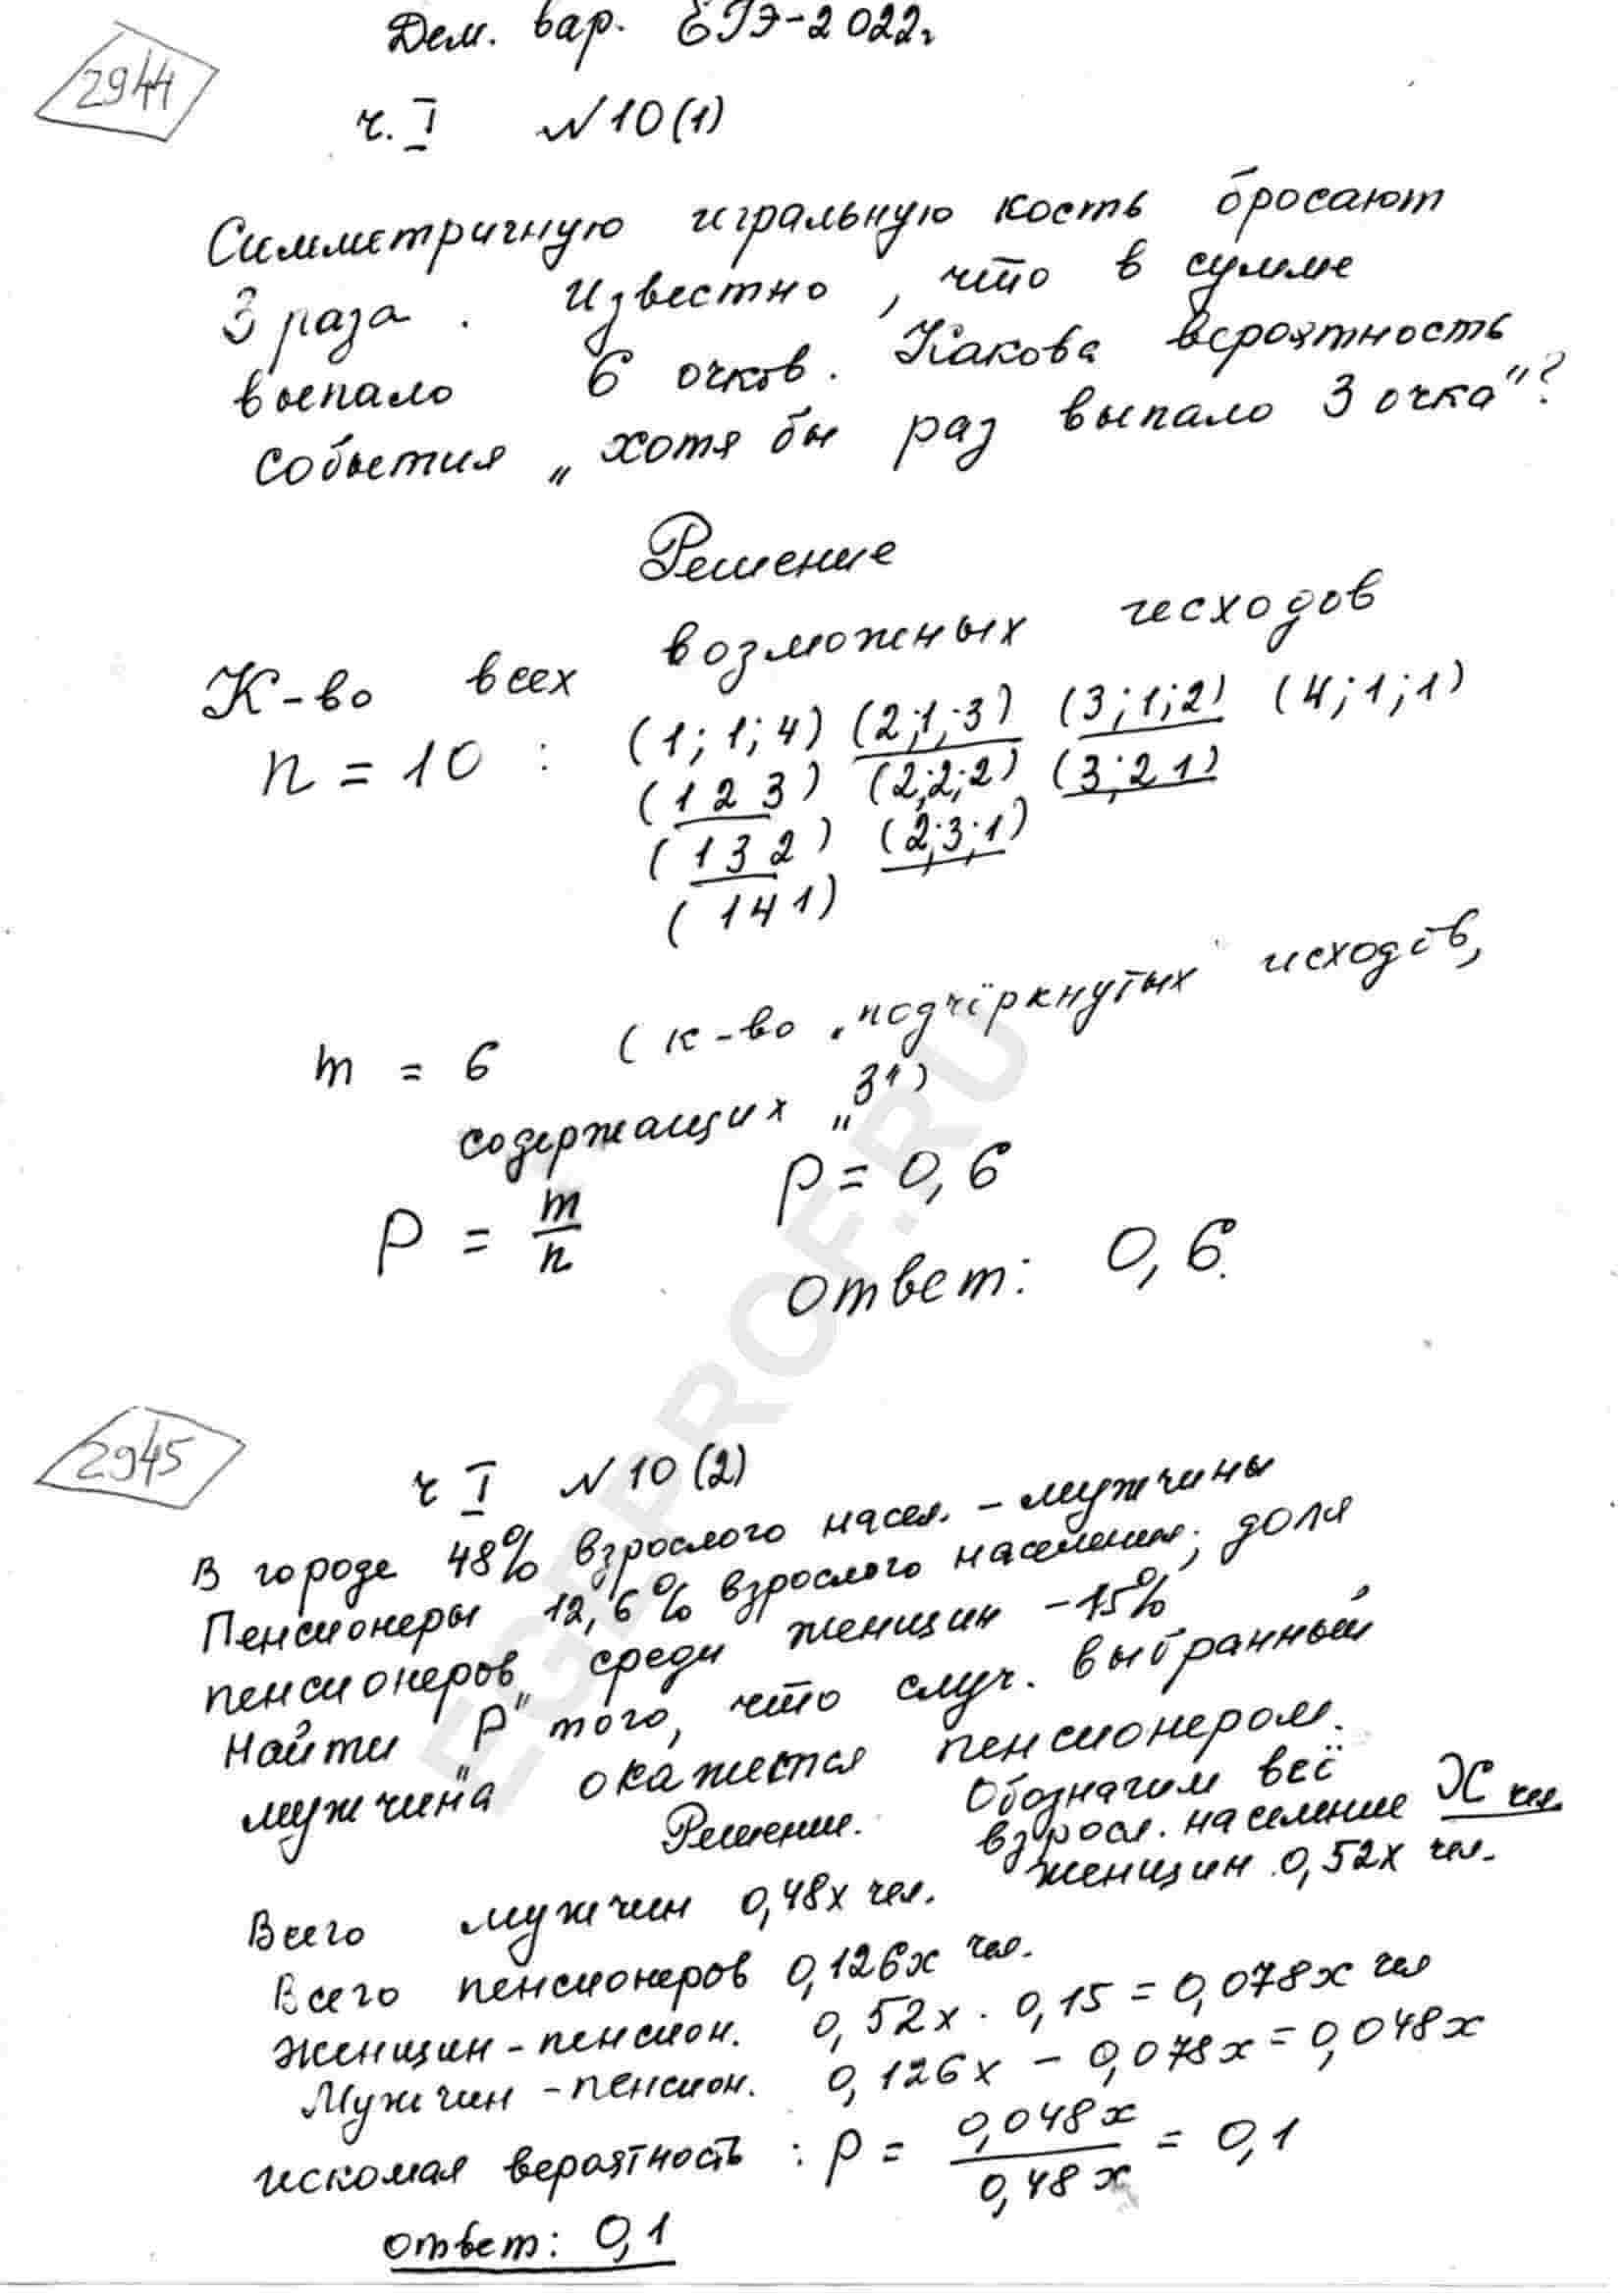 Дем. вар. ЕГЭ-2022г
2944
ч. I № 10(1)
Симметричную игральную кость бросают
3 раза. Известно, что в сумме
выпало 6 очков. Какова вероятность
события „хотя бы раз выпало 3 очка"?
Решение
К-во всех возможных исходов
n = 10 : (1; 1; 4) (2; 1; 3) (3; 1; 2) (4; 1; 1)
(1 2 3) (2; 2; 2) (3; 2 1)
(1 3 2) (2; 3; 1)
(1 4 1)
m = 6 (к-во „подчёркнутых" исходов,
содержащих „3")
P = m/n P = 0,6
Ответ: 0,6.
EGEPROF.RU
2945
ч I № 10 (2)
В городе 48% взрослого насел. – мужчины
Пенсионеры 12,6% взрослого населения; доля
пенсионеров среди женщин – 15%
Найти „P" того, что случ. выбранный
мужчина окажется пенсионером.
Решение. Обозначим всё
взросл. население X чел.
Всего мужчин 0,48x чел. женщин 0,52x чел.
Всего пенсионеров 0,126x чел.
Женщин-пенсион. 0,52x · 0,15 = 0,078x чел
Мужчин-пенсион. 0,126x – 0,078x = 0,048x
искомая вероятность : P = 0,048x/0,48x = 0,1
ответ: 0,1